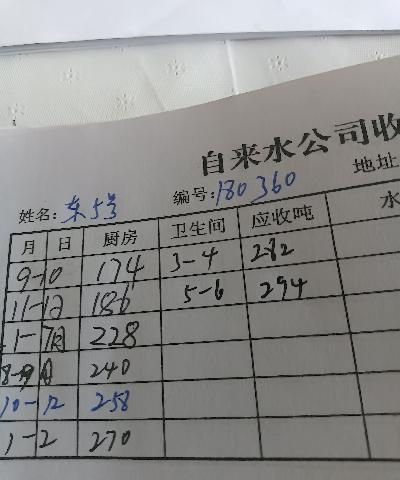 自来水公司收
姓名: 东5号 编号: 180360 地址
月 日 厨房 卫生间 应收吨 水
9-10 174 3-4 282
11-12 186 5-6 294
1-7月 228
8-9月 240
10-12 258
1-2 270